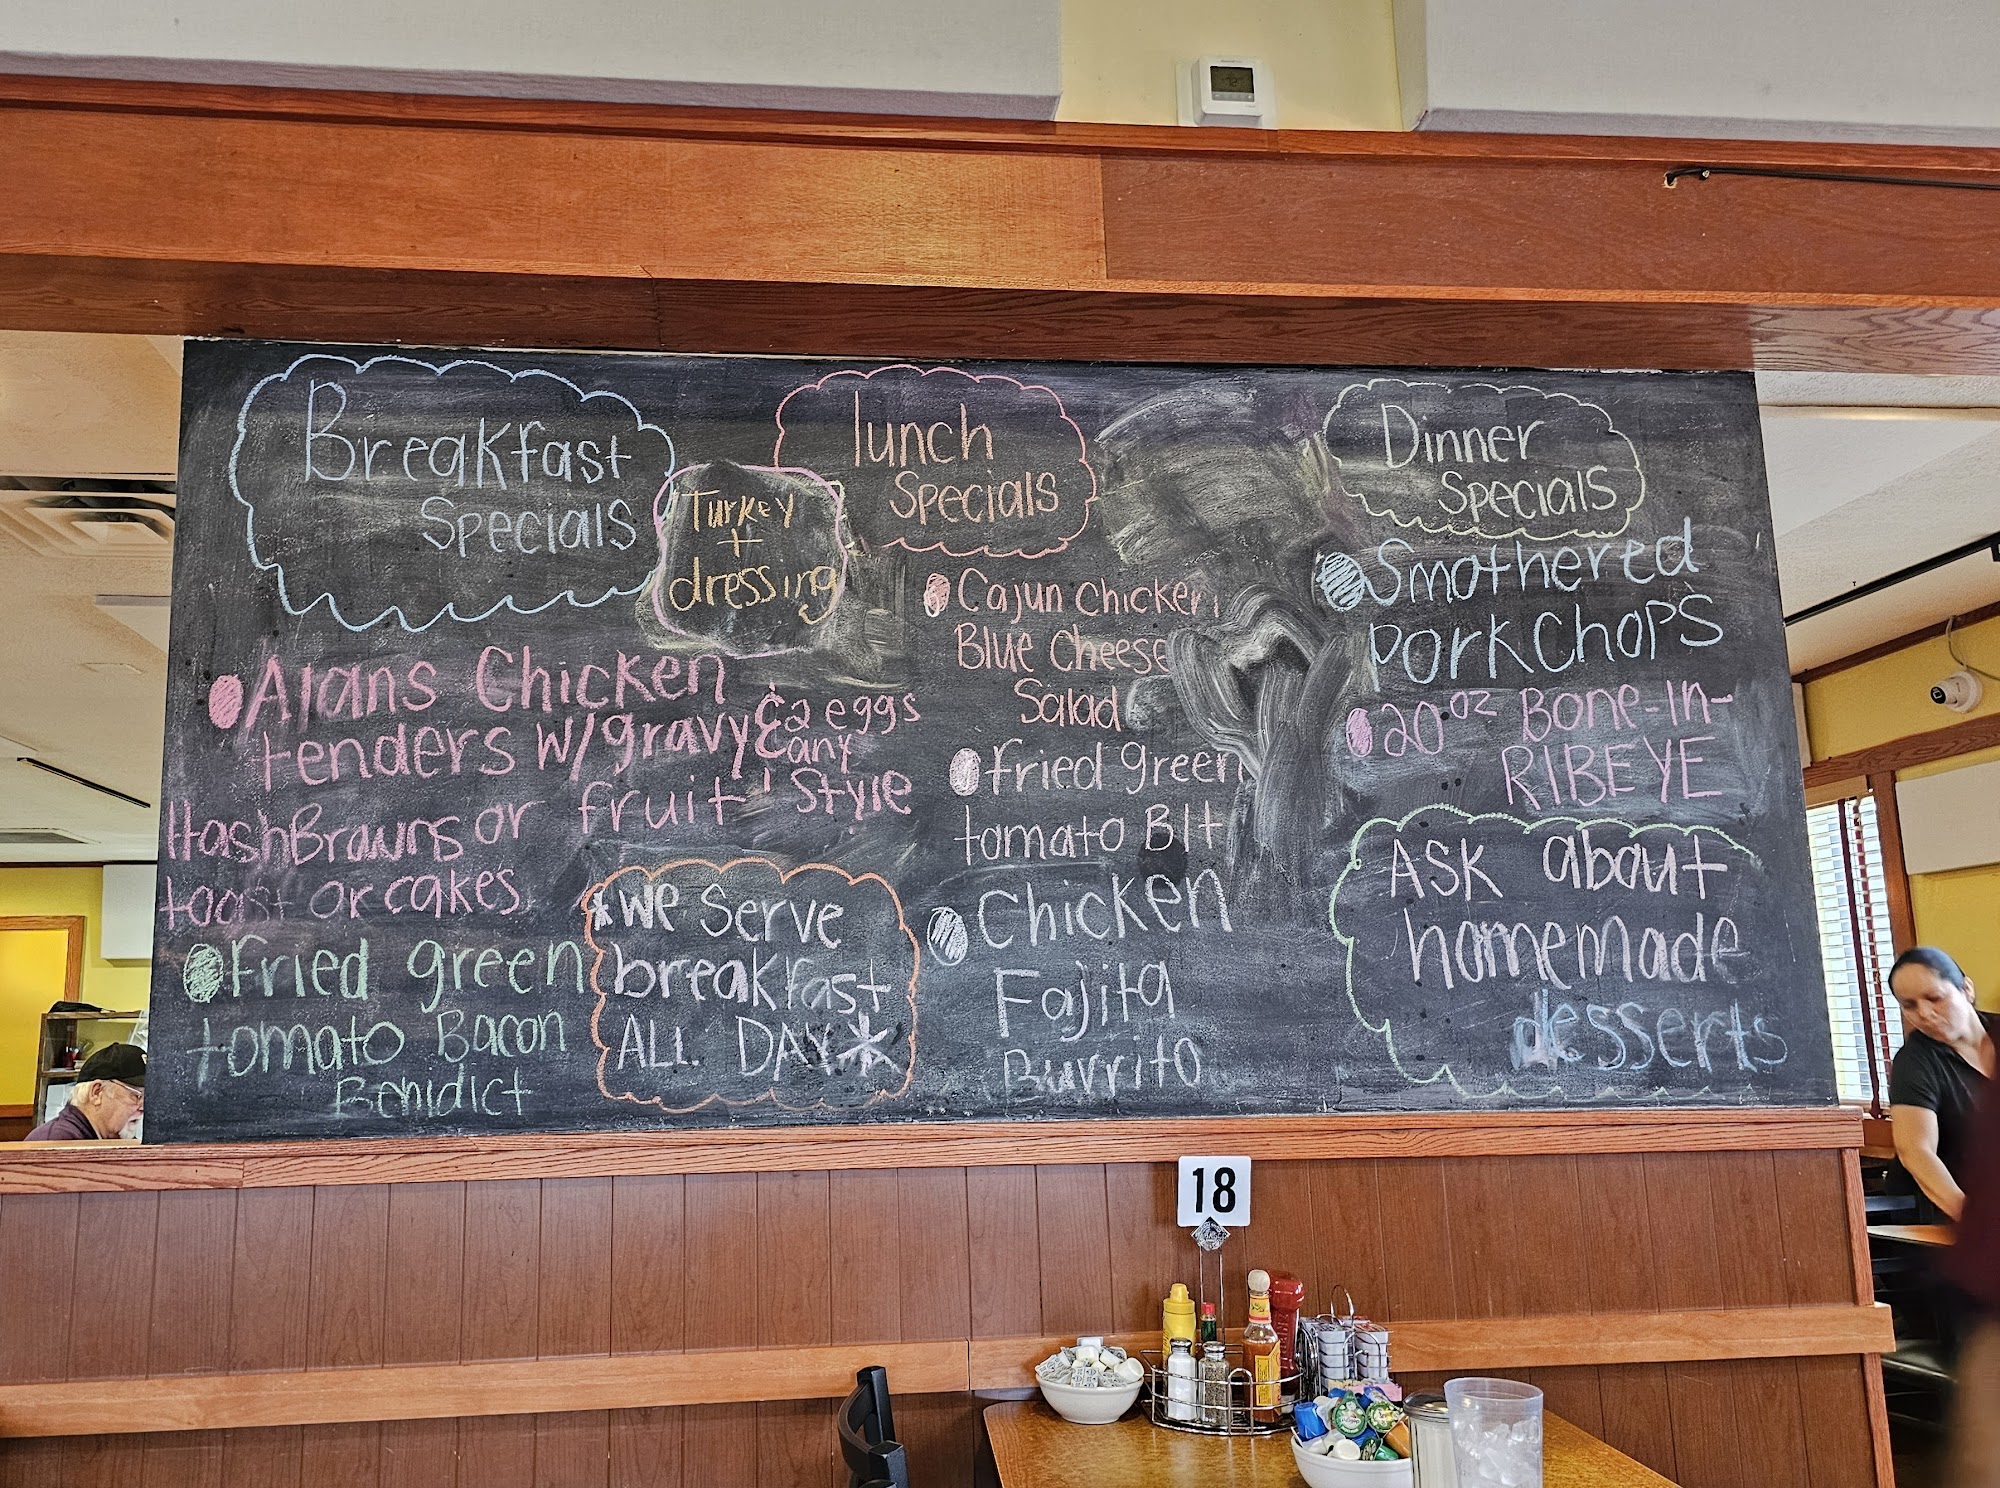 Breakfast
Specials
Turkey
+
dressing
Alans Chicken
tenders w/gravy & 2 eggs
& any
Style
HashBrowns or fruit
toast or cakes
Fried green
tomato Bacon
Benidict
*We Serve
breakfast
ALL DAY*
lunch
Specials
Cajun chicken
Blue Cheese
Salad
fried green
tomato Blt
Chicken
Fajita
Burrito
Dinner
Specials
Smothered
PorkChops
20oz Bone-In-
RIBEYE
ASK about
homemade
desserts
18